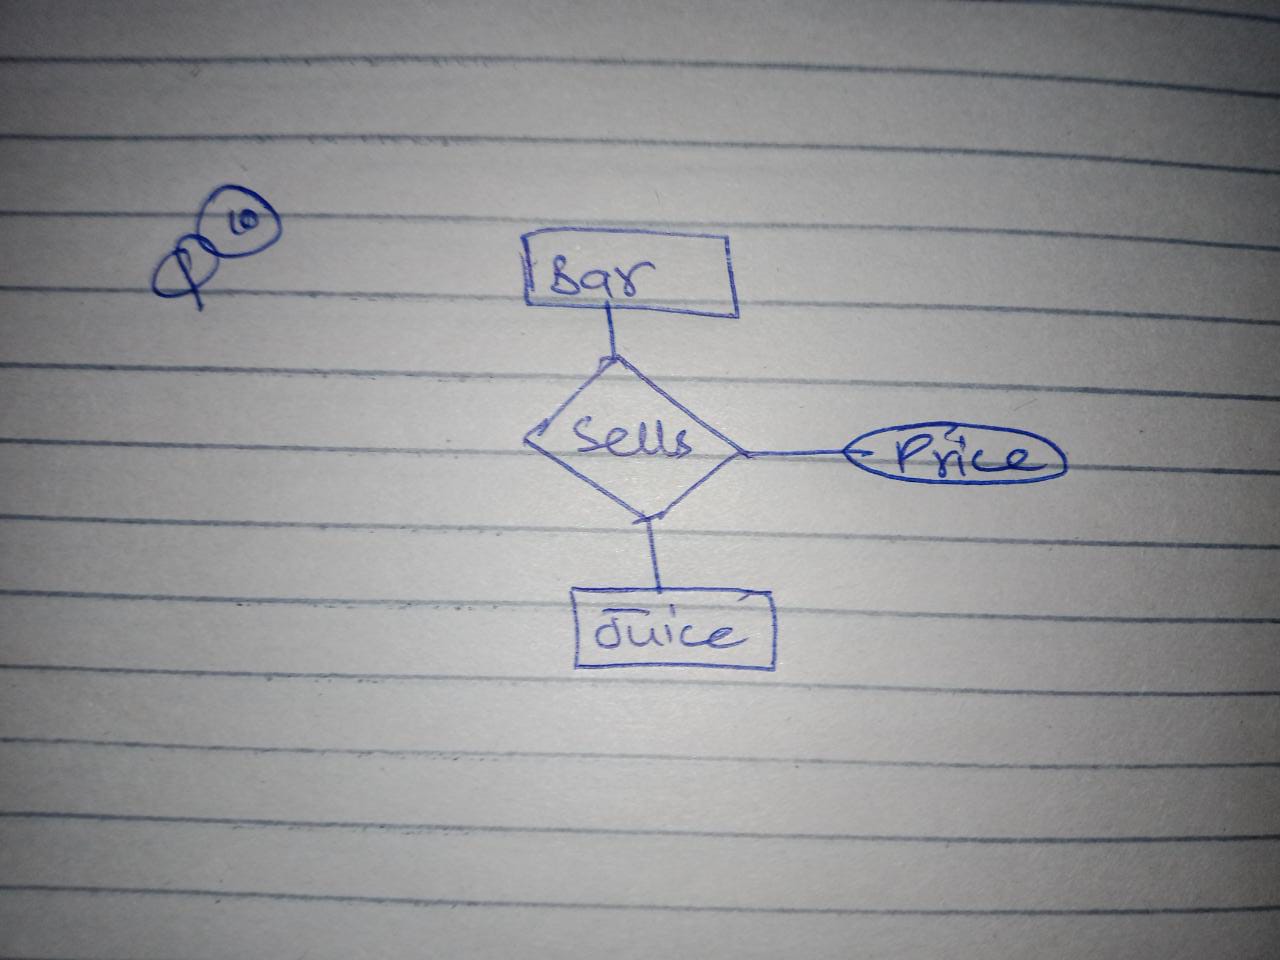 10
Bar
Sells
Price
Juice